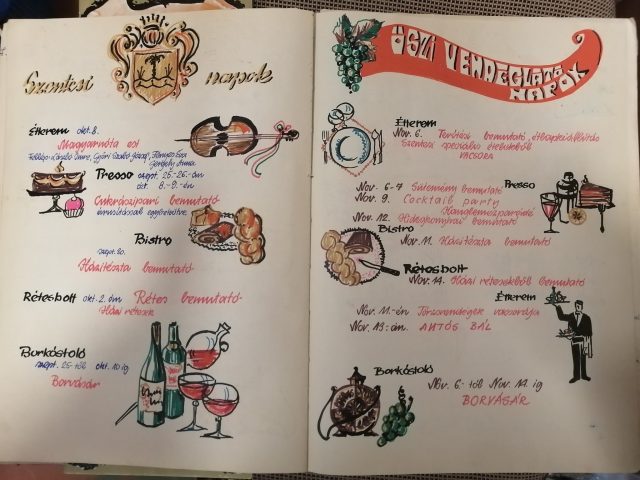 Szentesi napok
Étterem okt. 8.
Magyarnóta est
Presso szept. 25-26.-án
okt. 8.-9.-én
Cukrászipari bemutató
árusítással egybekötve
Bistro
szept. 30.
Házitészta bemutató
Rétesbolt okt. 2.án Rétes bemutató
Házi rétesek
Borkóstoló
szept. 25-től okt. 10 ig
Borvásár
ŐSZI VENDÉGLÁTÓ
NAPOK
Étterem
Nov. 6. Terítési bemutató,
Szentesi speciális ételekből
VACSORA
Presso
Nov. 6-7 Sütemény bemutató
Nov. 9. Cocktail party
Hanglemezparádé
Nov. 12. Hidegkonyhai bemutató
Bistro
Nov. 11. Házitészta bemutató
Rétesbolt
Nov. 14. Házi rétesekből bemutató
Étterem
Nov. 11.-én Törzsvendégek vacsorája
Nov. 13.-án AUTÓS BÁL
Borkóstoló
Nov. 6.-tól Nov. 14. ig
BORVÁSÁR